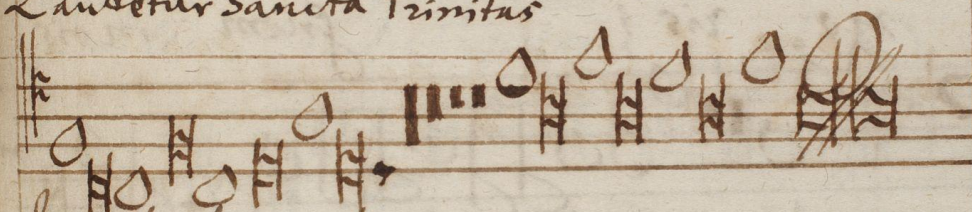 Laudetur Sancta Trinitas